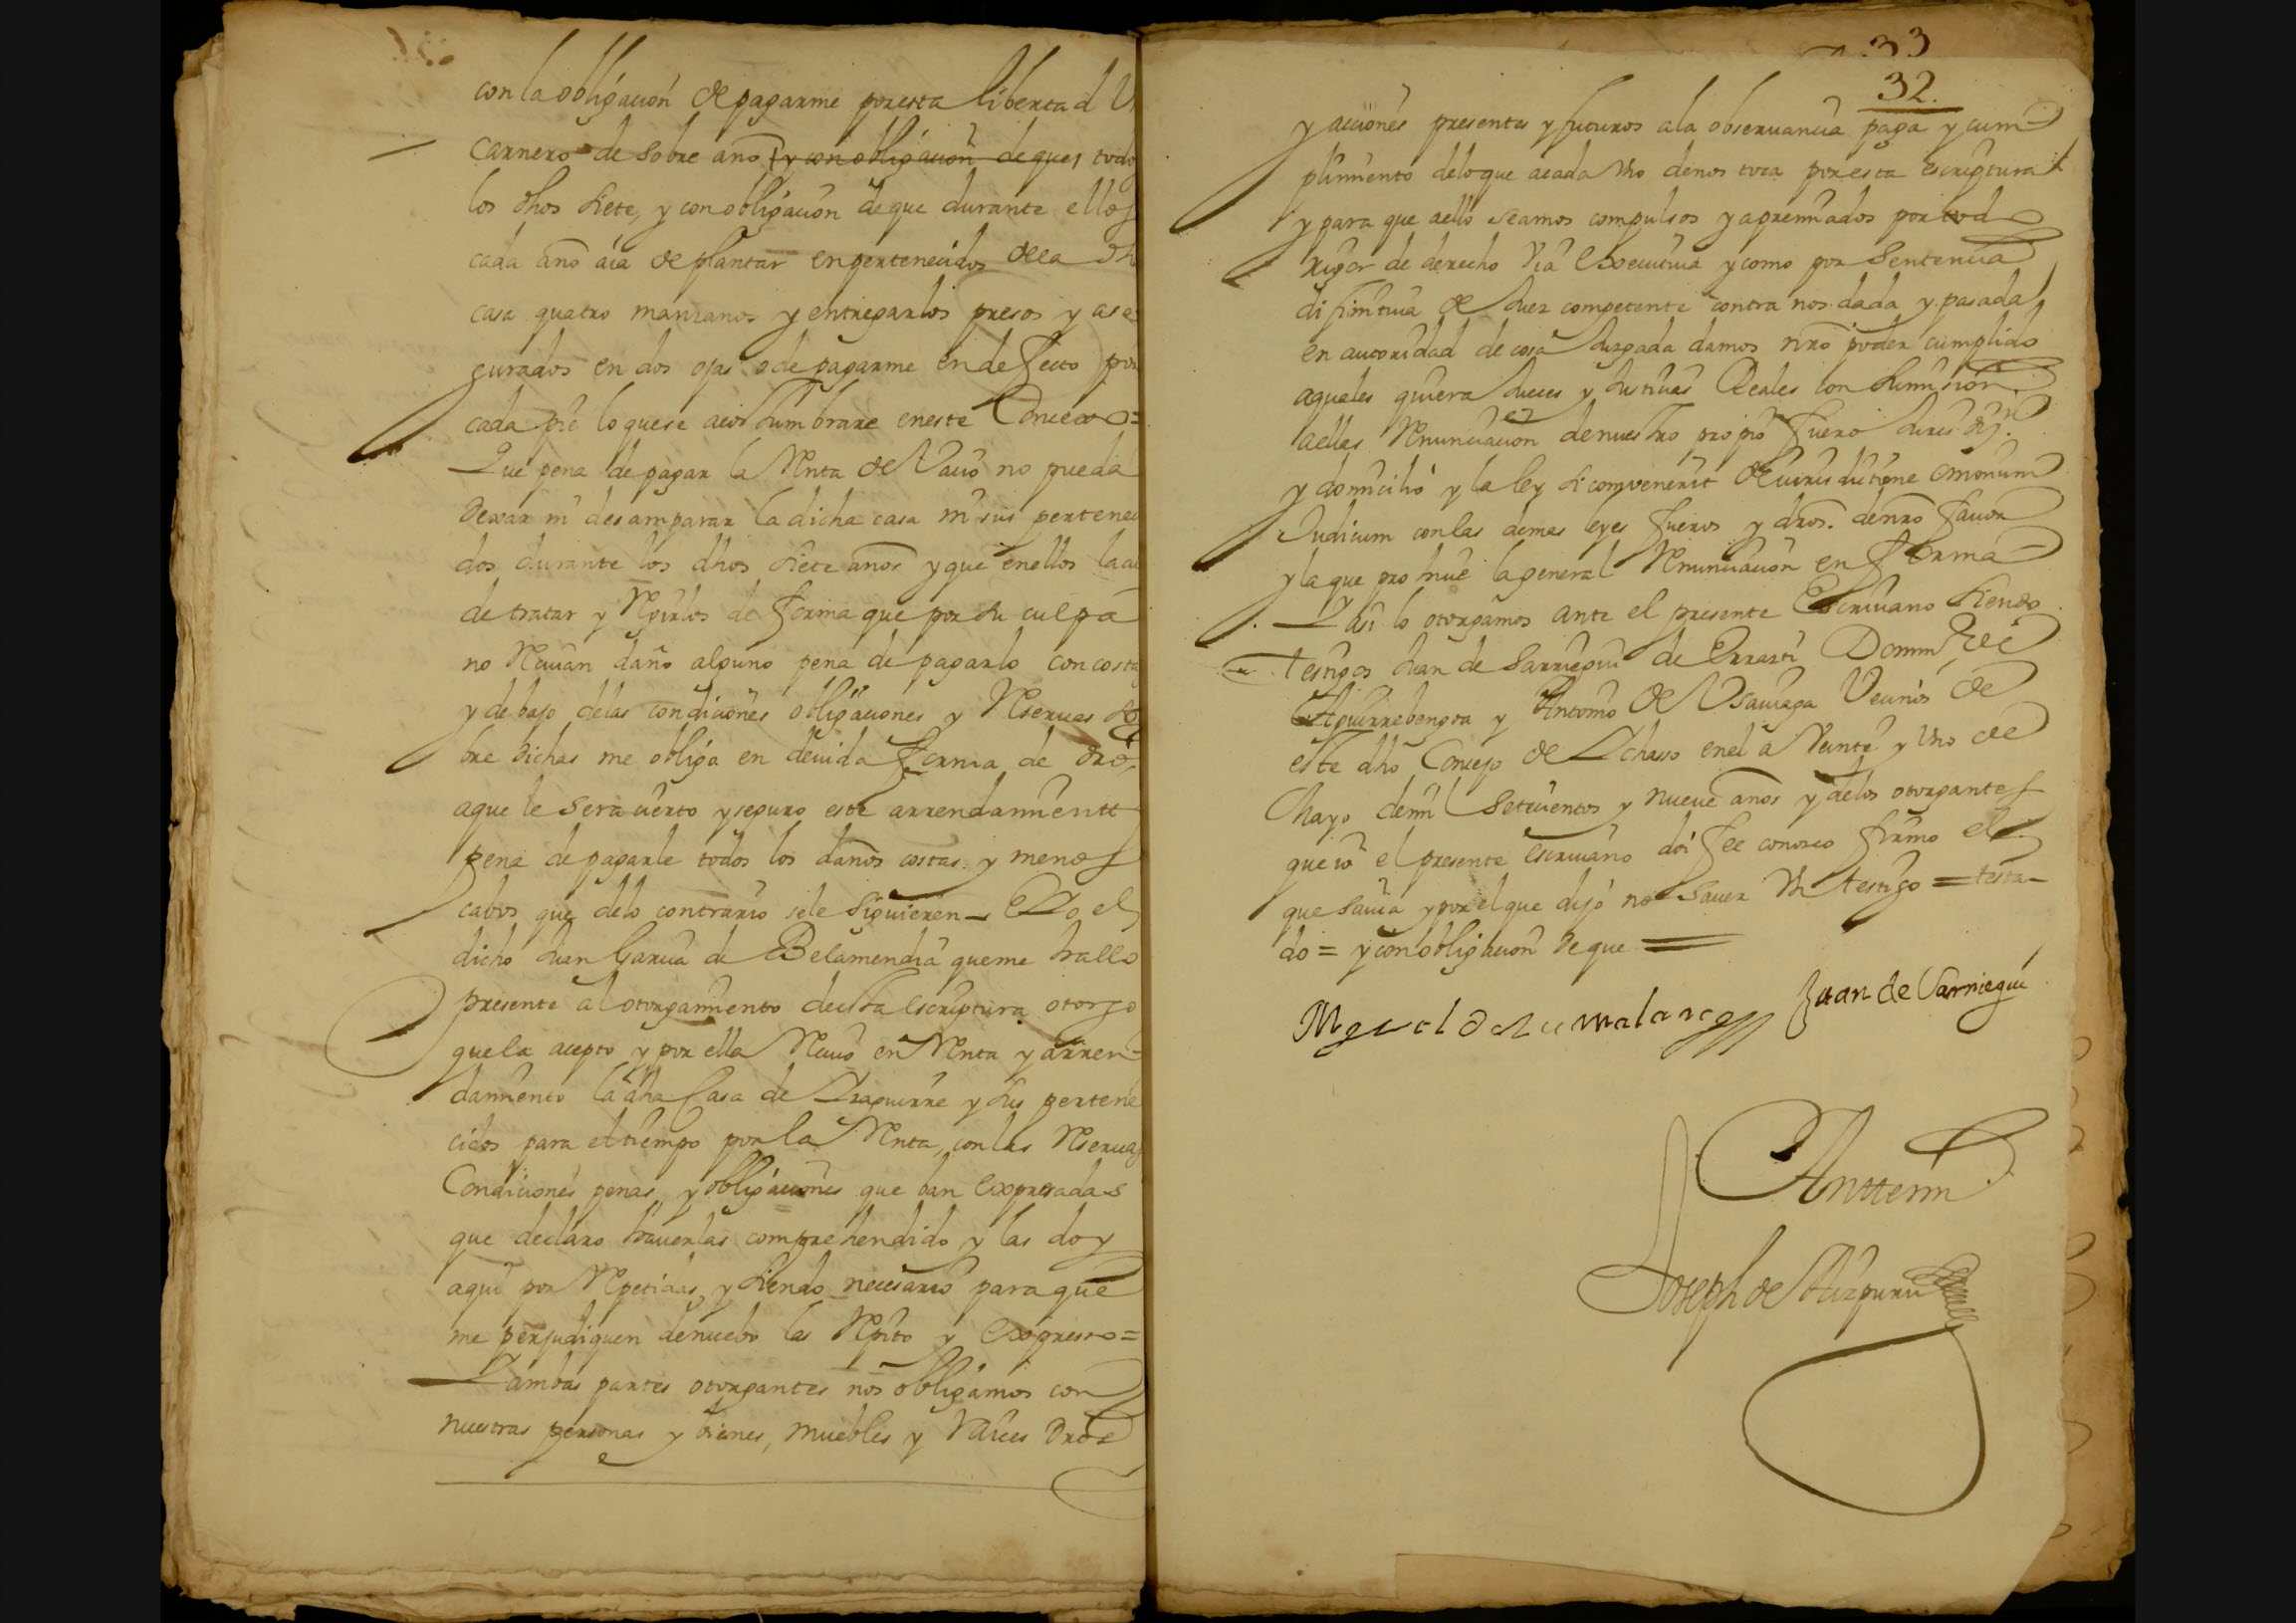 con la obligaçion de pagarme por esta libertad Vn
carnero de sobre año y con obligaçion de que, todos
los dhos siete, y con obligaçion de que durante ellos
cada año aia de plantar en pertenecidos de la dha
casa quatro manzanos y entregarlos presos y ase
gurados en dos ojas o de pagarme en defecto por
cada pie lo que se acostumbrare en este Concexo =
Que pena de pagar la Renta de Vacio no pueda
dexar ni desamparar la dicha casa ni sus perteneci
dos durante los dhos siete años y que en ellos la aia
de tratar y Regirlos de forma que por su culpa
no Reciuan daño alguno pena de pagarlo con costas
y debajo de las condiciones obligaciones y Reseruas so
bre dichas me obligo en deuida forma de dro
a que le sera cierto y seguro este arrendamientt
pena de pagarle todos los daños costas y menos
cabos que de lo contrario se le siguieren – E Yo el
dicho Juan Garcia de Belamendia que me hallo
presente al otorgamiento de esta escriptura otorgo
que la acepto y por ella Reciuo en Renta y arren-
damiento la dha Casa de Yraguirre y sus pertene
cidos para el tiempo por la Renta, con las Reseruas
Condiciones penas, y obligaciones que ban expresadas
que declaro hauerlas comprehendido y las doy
aqui por Repetidas, y siendo necesario para que
me perjudiquen de nuebo las Repito y Expreso =
Y ambas partes otorgantes nos obligamos con
nuestras personas y bienes, muebles y Raices dros
33
32.
y acciones presentes y futuros a la obseruancia paga y cum-
plimiento de lo que a cada Vno de nos toca por esta escriptura
y para que a ello seamos compulsos y apremiados por tod
rigor de derecho Via Executiua y como por Sentencia
difinitiua de Juez competente contra nos dada y pasada
en autoridad de cosa Juzgada damos nro poder cumplido
a quales quiera Jueces y Justicias Reales con sumision
a ellas Renunciacion de nuestro propio fuero Jurisdon
y domicilio y la ley si convenerit de iurisdictione omnium
Judicum con las demas leyes fueros y dros. de nro fauor
y la que prohiue la general Renunciacion en forma
Y asi lo otorgamos ante el presente Escriuano siendo
testigos Juan de Sarriegui de Errarti Domingo de
Aguirrebengoa y Antonio de Vsauiaga Vecinos de
este dho Concejo de Ychaso en el a Veinte y Vno de
Mayo de mil Setecientos y nueue años y de los otorgantes
que io el presente escriuano doi fee conozco firmo el
que sauia y por el que dijo no Sauer Vn testigo = testa-
do = y con obligacion de que =
Miguel de Zumalaraegi Juan de Sarriegui
Antte mi
Joseph de Aizpuru